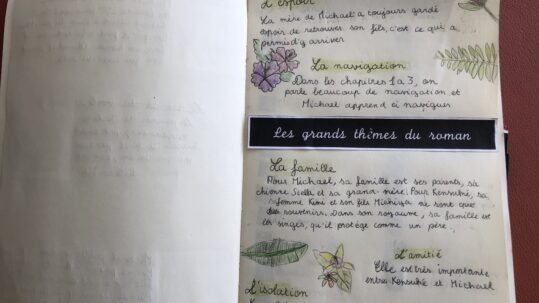 L'espoir
La mère de Michael a toujours gardé
espoir de retrouver son fils, c'est ce qui a
permis d'y arriver
La navigation
Dans les chapitres 1 à 3, on
parle beaucoup de navigation et
Michael apprend à naviguer
Les grands thèmes du roman
La famille
Pour Michael, sa famille est ses parents, sa
chienne Stella et sa grand-mère. Pour Kensuké, sa
femme Kimi et son fils Michiya ne sont que
des souvenirs. Dans son royaume, sa famille est
singes, qu'il protège comme un père.
L'amitié
Elle est très importante
entre Kensuké et Michael
L'isolation